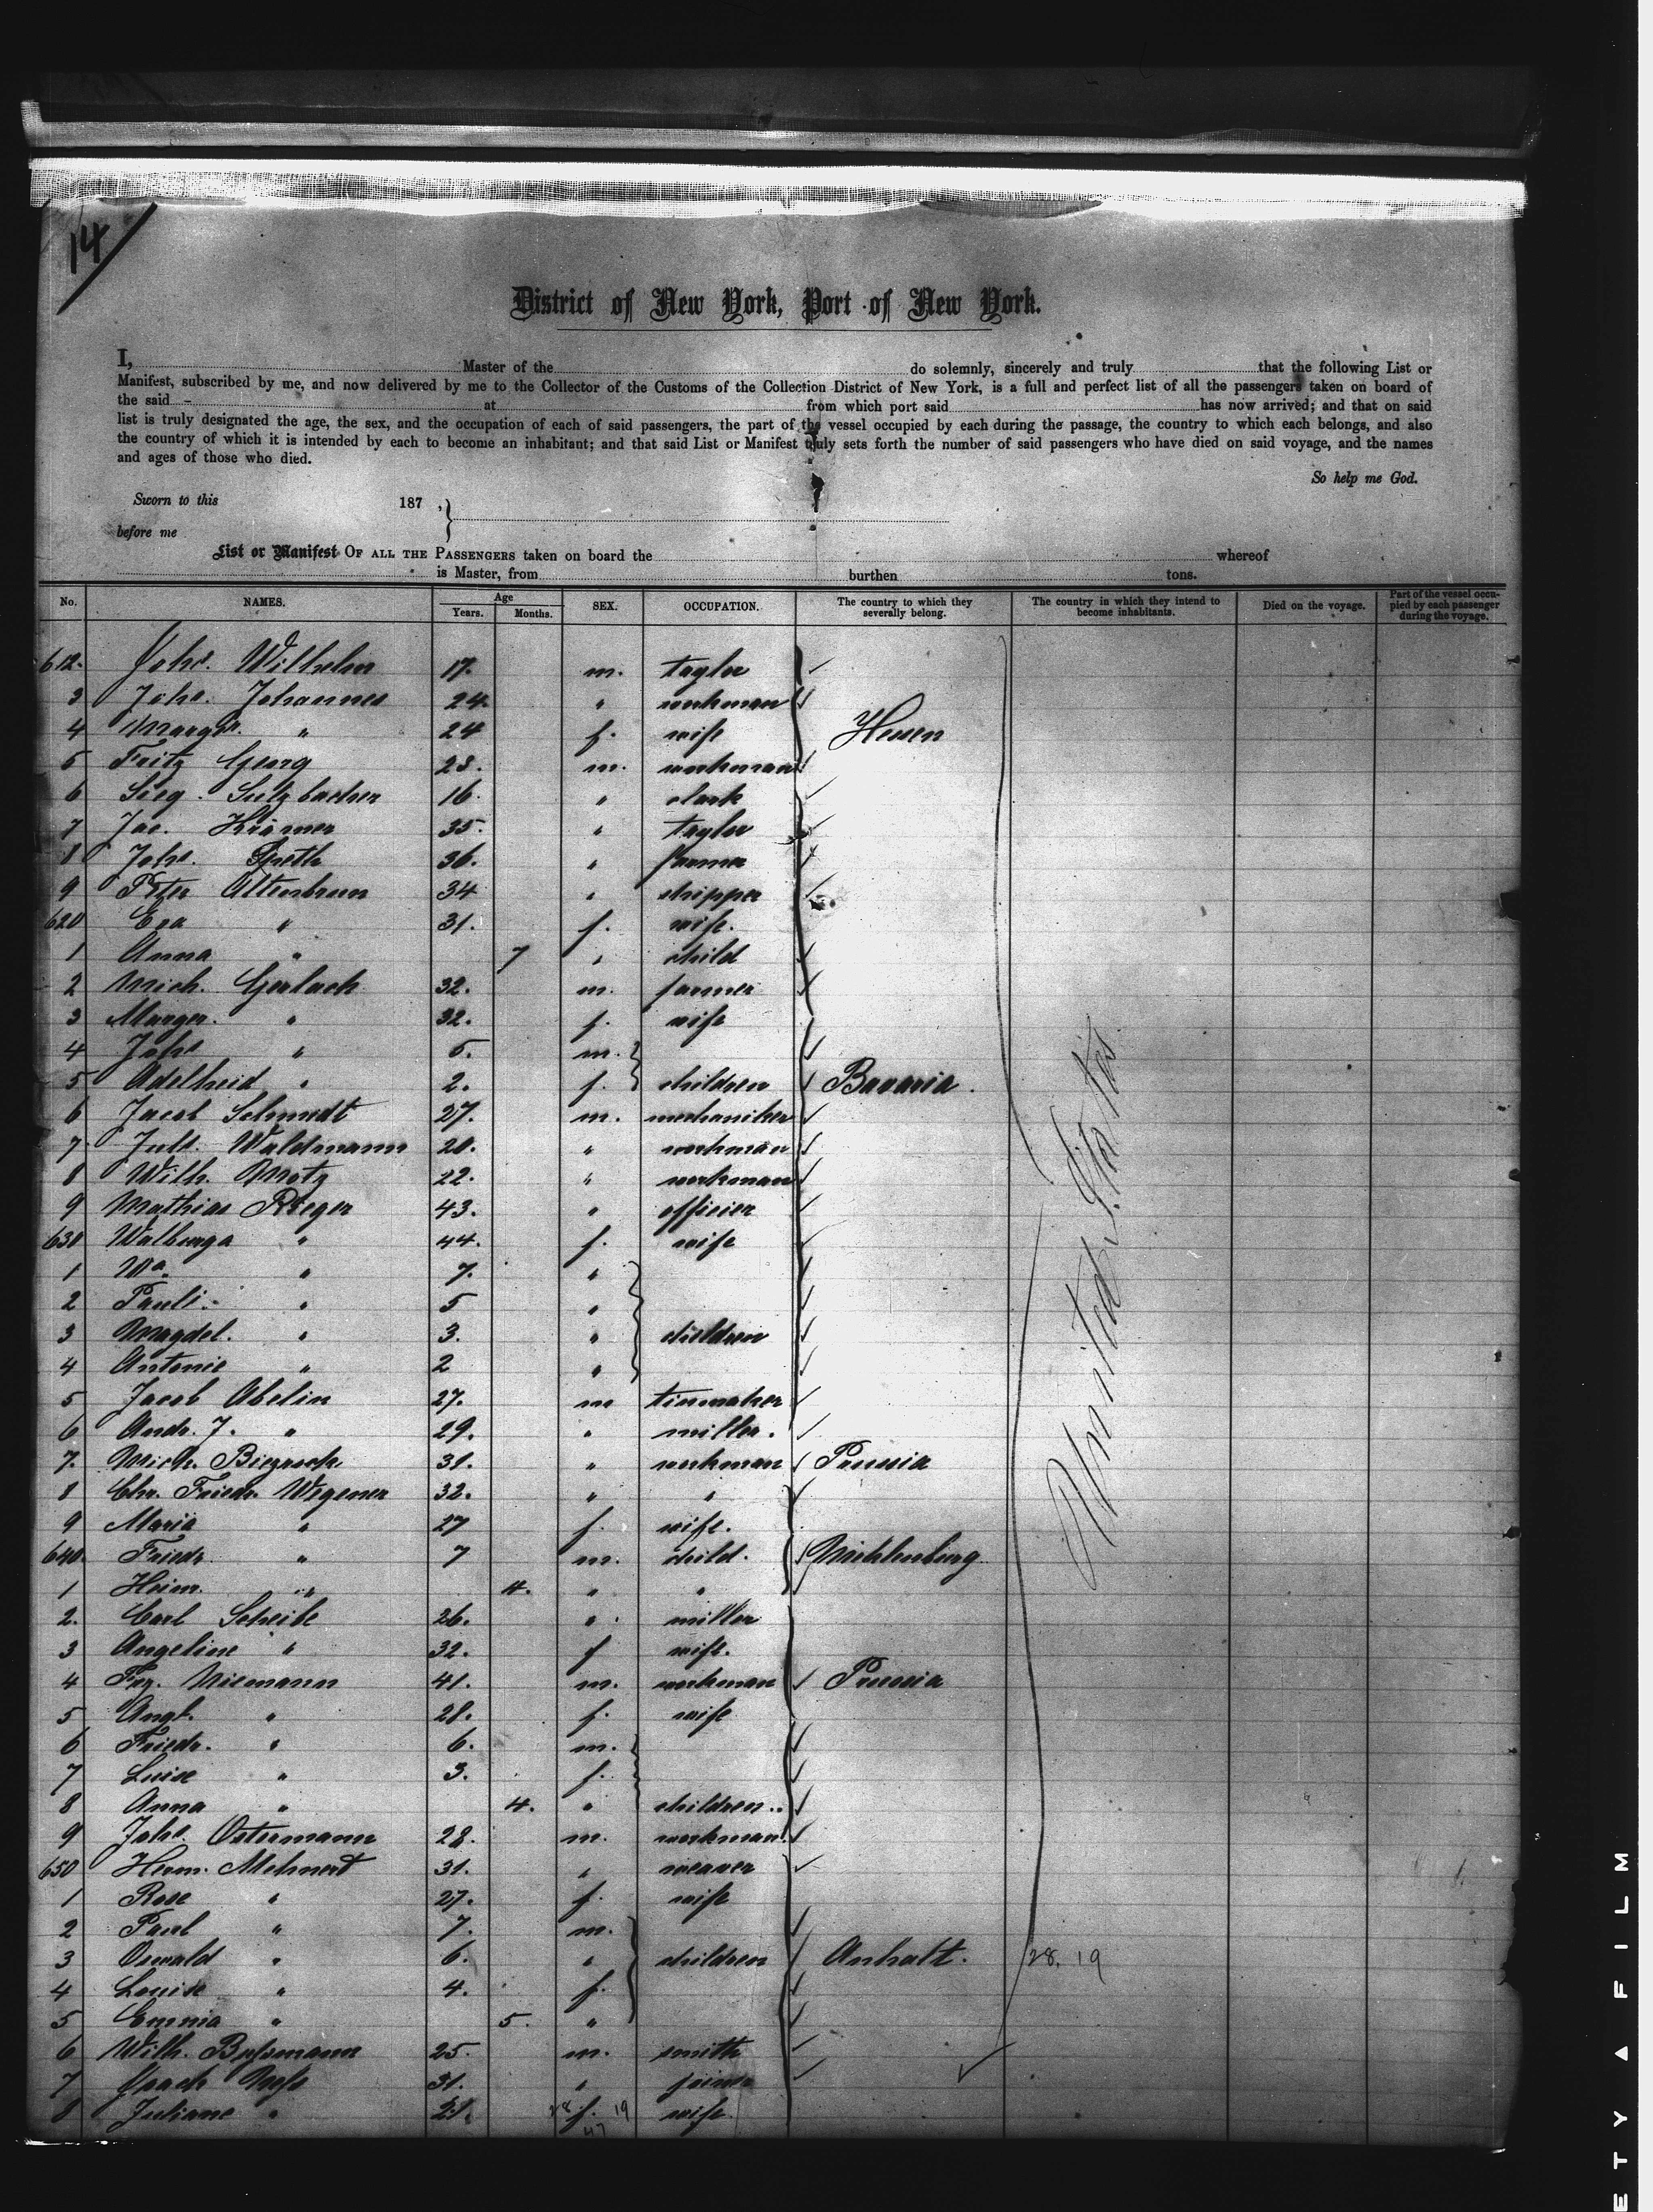 14
District of New York, Port of New York.
I, Master of the do solemnly, sincerely and truly that the following List or
Manifest, subscribed by me, and now delivered by me to the Collector of the Customs of the Collection District of New York, is a full and perfect list of all the passengers taken on board of
the said at from which port said has now arrived; and that on said
list is truly designated the age, the sex, and the occupation of each of said passengers, the part of the vessel occupied by each during the passage, the country to which each belongs, and also
the country of which it is intended by each to become an inhabitant; and that said List or Manifest truly sets forth the number of said passengers who have died on said voyage, and the names
and ages of those who died.
So help me God.
Sworn to this 187 ,
before me
List or Manifest OF ALL THE PASSENGERS taken on board the whereof
is Master, from burthen tons.
No. NAMES. Age Years. Months. SEX. OCCUPATION. The country to which they severally belong. The country in which they intend to become inhabitants. Died on the voyage. Part of the vessel occupied by each passenger during the voyage.
612. Johs. Wilhelm 17. m. taylor
3 Johs. Johannes 24. " workman
4 Margr. " 24 f. wife Hessen
5 Fritz Georg 23. m. workman
6 Sieg. Sulzbacher 16. " clark
7 Jac. Krämer 35. " taylor
8 Johs. Speth 36. " farmer
9 Peter Altenbrun 34 " shipper
620 Eva " 31. f. wife.
1 Anna " 7 " child
2 Mich. Gerlach 32. m. farmer
3 Marger. " 32. f. wife
4 Johs " 5. m.
5 Adelheid " 2. f. children Bavaria.
6 Jacob Schmidt 27. m. mechaniker
7. Juls. Waldmann 20. " workman
8 Wilh. Motz 22. " workman
9 Mathias Rieger 43. " officier
630 Walburga " 44. f. wife
1 Ma. " 7. "
2 Pauli. " 5 "
3 Magdal. " 3. " children
4 Antonie " 2 "
5 Jacob Abelin 27. m tinmaker
6 Andr. J. " 29. " miller.
7. Mich. 31. " workman Prussia
8 Chr. Friedr. Wegener 32. " "
9 Maria " 27 f. wife.
640. Friedr. " 7 m. child. Mecklenburg
1 Heinr. " 4. " "
2. Carl Scheibe 26. " miller
3 Angeline " 32. f wife.
4 Frz. Niemann 41. m. workman Prussia
5 Angl. " 28. f. wife
6 Friedr. " 6. m.
7 Luise " 3. f.
8 Anna " 4. " children..
9 Johs. Ostermann 28. m. workman
650 Herm. Mehnert 31. " weaver
1 Rose " 27. f. wife
2 Paul " 7. m.
3 Oswald " 6. " children Anhalt. 28. 19
4 Louise " 4. f.
5 Emma " 5. "
6 Wilh. Bussmann 25. m. smith
7 31. " joiner
8 Juliane " 21. f. wife.
28 19
47
United States
ETY ▲ FILM